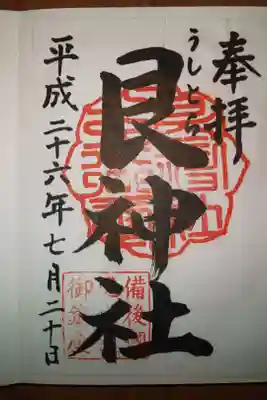 奉拝
うしとら
艮神社
平成二十六年七月二十日
備後